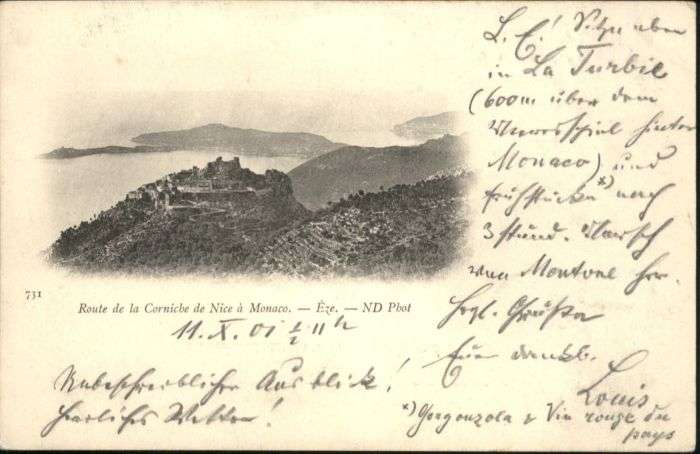 L. E.! Sitze eben
in La Turbie
(600m über dem
Meeresspiel hinter
Monaco) und
frühstücke *) nach
3 stünd. Marsch
von Mentone her.
Hrzl. Grüsse
Euer dankb.
Louis
*) Gorgonzola & Vin rouge du
pays
731
Route de la Corniche de Nice à Monaco. — Èze. — ND Phot
11. X. 01 ½ 11 h
Unbeschreiblicher Ausblick!
herrliches Wetter!